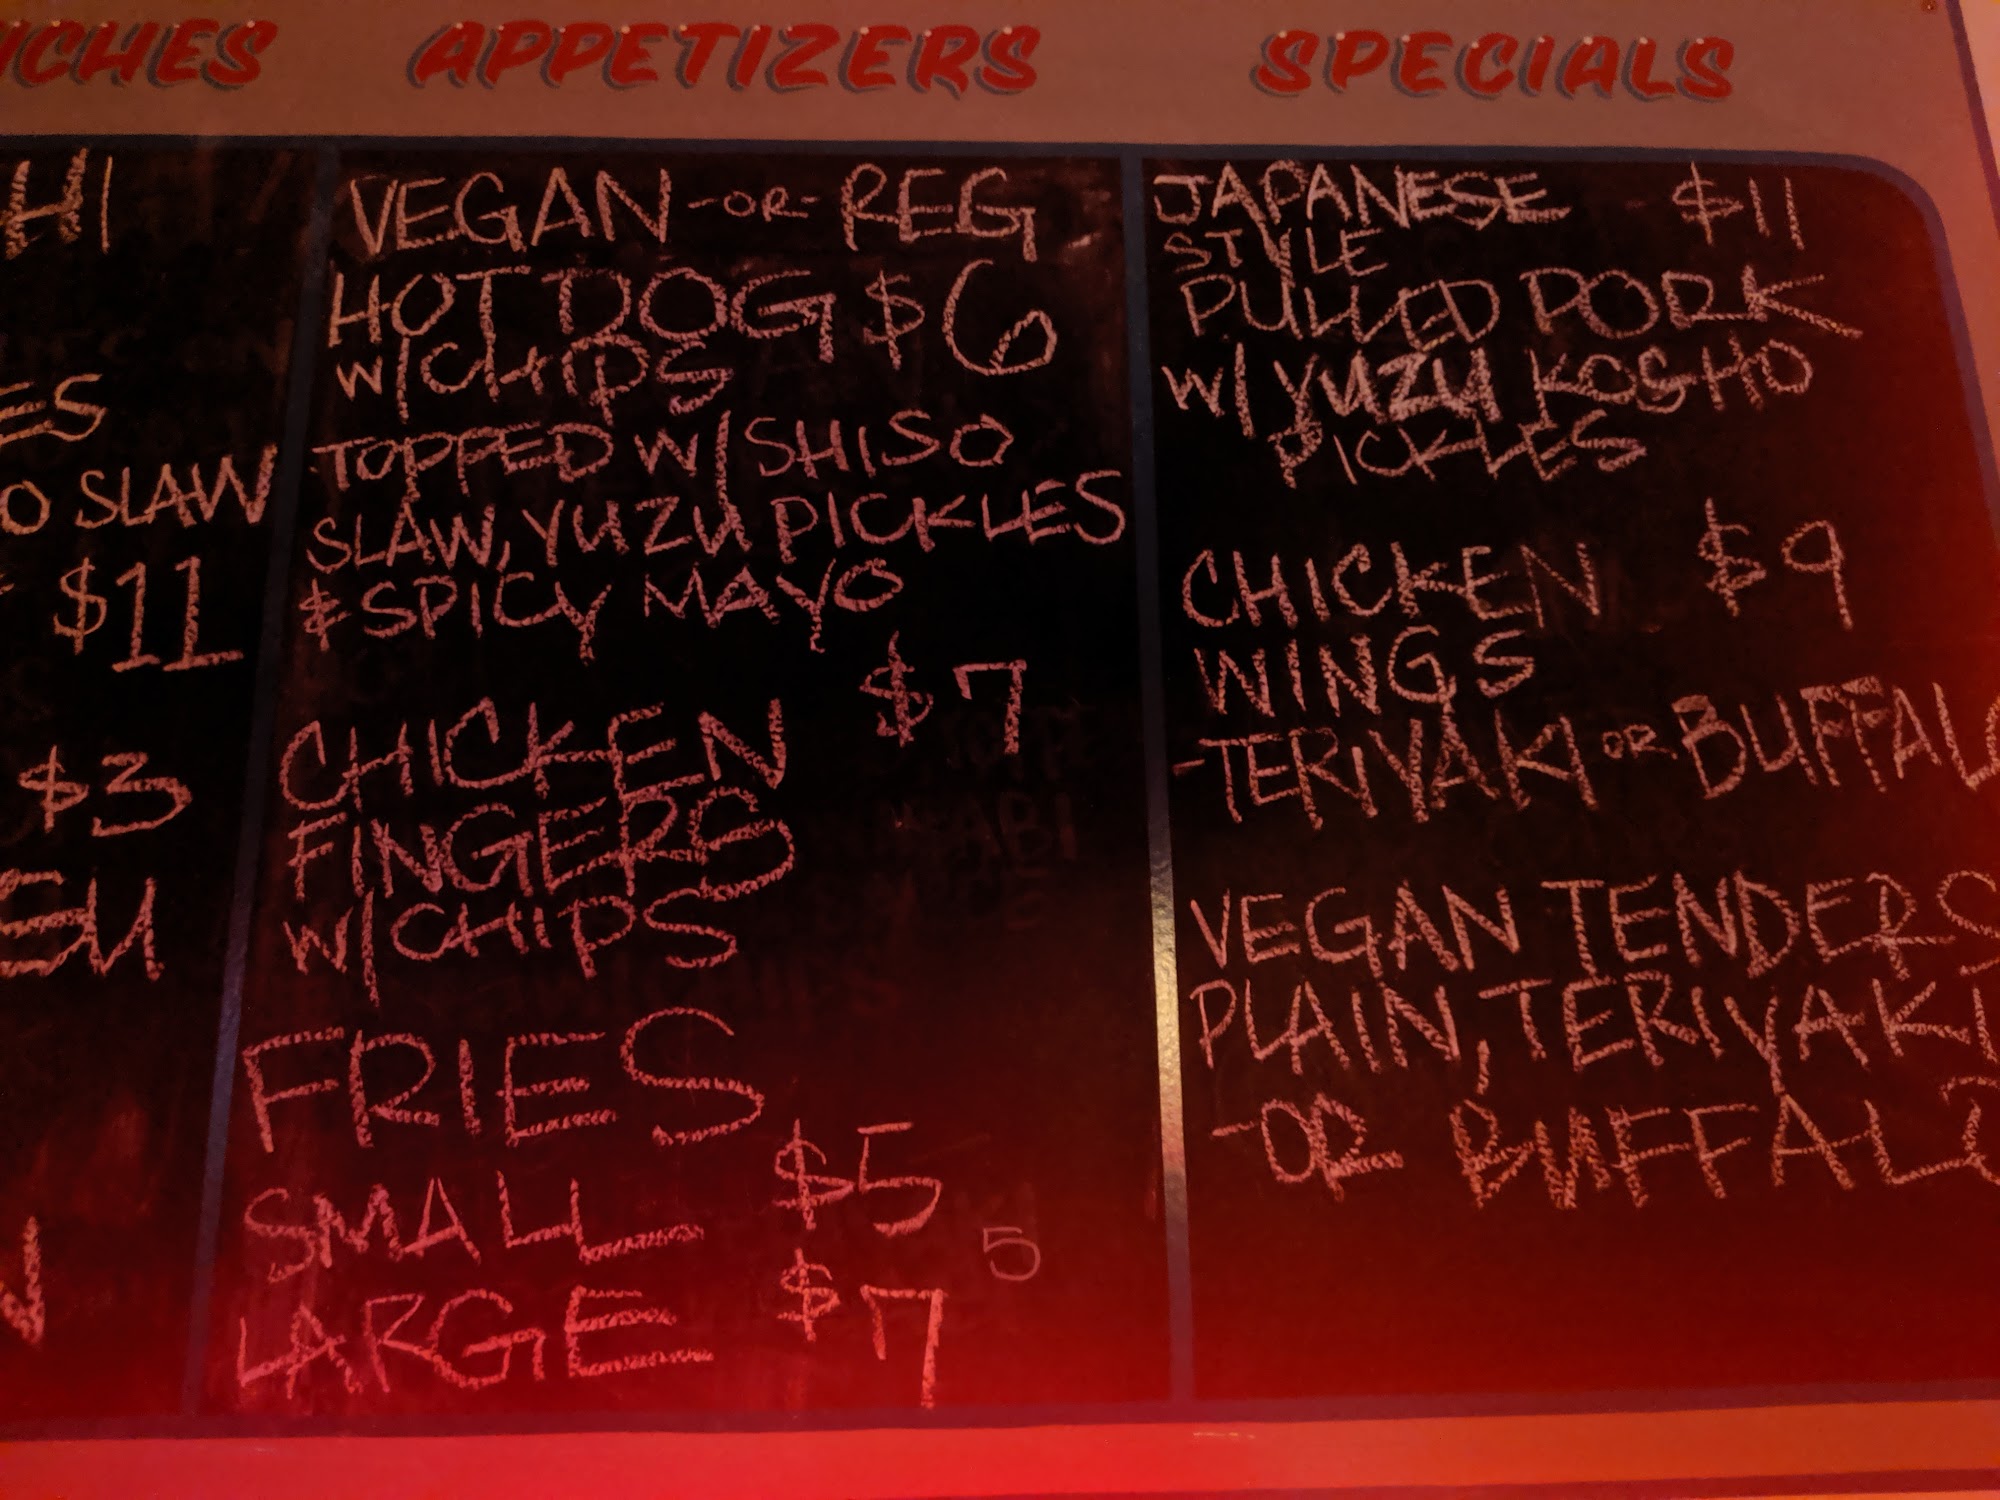 APPETIZERS
SPECIALS
ES
O SLAW
$11
$3
VEGAN -OR- REG
HOT DOG $6
W/CHIPS
TOPPED W/ SHISO
SLAW, YUZU PICKLES
& SPICY MAYO
$7
CHICKEN
FINGERS
W/CHIPS
FRIES
SMALL $5
5
LARGE $7
JAPANESE $11
STYLE
PULLED PORK
W/ YUZU KOSHO
PICKLES
CHICKEN $9
WINGS
-TERIYAKI OR BUFFALO
VEGAN TENDERS
PLAIN, TERIYAKI
-OR BUFFALO